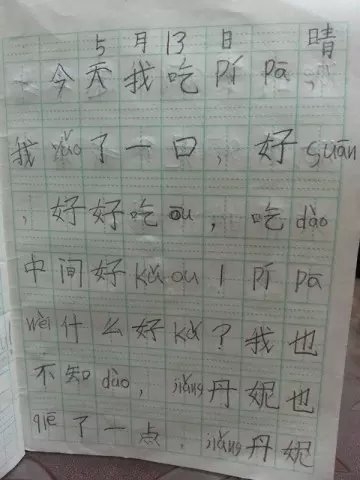 5月13日 晴
今天我吃pí pā，
我yǎo了一口，好suān
，好好吃ou，吃dào
中间好kǔ ou！pí pā
wèi什么好kǔ？我也
不知dào，jiǎng丹妮也
qiē了一点，jiǎng丹妮